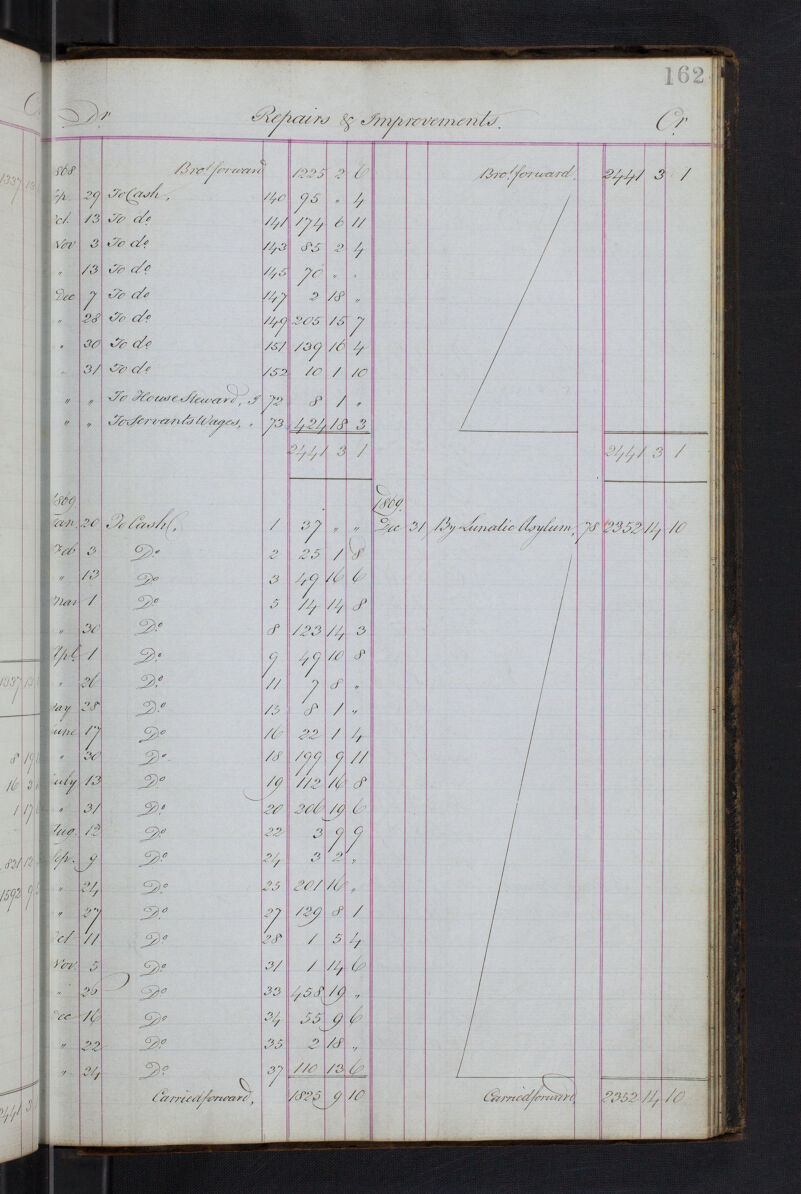 162
Dr Repairs & Improvements. Cr
1868 Brot forward 1225 2 6 Brot forward. 2441 3 1
Sep. 29 To Cash, 140 95 " 4
Oct. 13 To do 141 174 6 11
Nov 3 To do 143 85 2 4
" 13 To do 145 70 " "
Dec 7 To do 147 2 18 "
" 28 To do 149 205 15 7
" 30 To do 151 139 16 4
" 31 To do 152 10 1 10
" " To House Steward, J 72 8 1 "
" " To Servants Wages, " 73 424 18 3
2441 3 1 2441 3 1
1869 1869
Jan. 20 To Cash C. 1 37 " " Dec 31 By Lunatic Asylum, 78 2352 14 10
Feb 3 Do 2 25 1 8
" 13 Do 3 49 16 6
Mar 1 Do 5 14 14 8
" 30 Do 8 123 14 3
Apl. 1 Do 9 49 10 8
" 26 Do 11 7 8 "
May 28 Do 13 8 1 "
June 17 Do 16 22 1 4
" 30 Do 18 199 9 11
July 13 Do 19 112 16 8
" 31 Do 20 206 19 6
Aug. 12 Do 22 3 9 9
Sep. 9 Do 24 3 2 "
" 24 Do 25 201 16 "
" 27 Do 27 129 8 1
Oct 11 Do 28 1 5 4
Nov. 5 Do 31 1 14 6
" 26 Do 33 458 19 "
Dec 16 Do 34 55 9 6
" 22 Do 35 2 18 "
" 24 Do 37 110 13 6
Carried forward, 1825 9 10 Carried forward. 2352 14 10